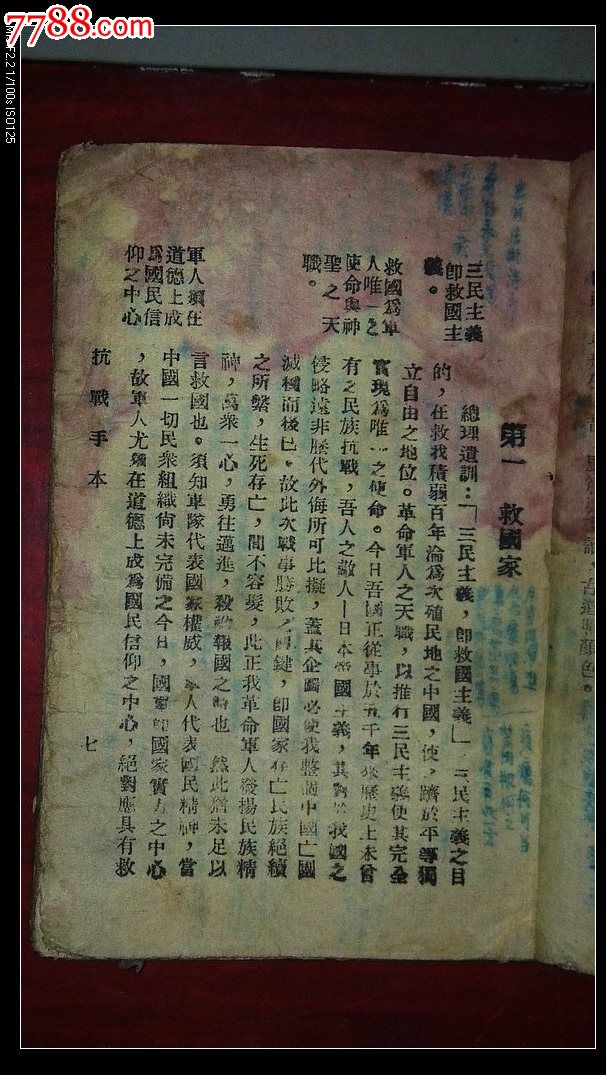 7788.com
F2.2 1/100s ISO125
第一 救國家
三民主義
卽救國主
義。
總理遺訓：「三民主義，卽救國主義」三民主義之目
的，在救我積弱百年淪爲次殖民地之中國，使 躋於平等獨
立自由之地位。革命軍人之天職，以推行三民主義使其完全
救國爲軍
人唯一之
使命與神
聖之天
職。
實現爲唯一之使命。今日吾國正從事於五千年來歷史上未曾
有之民族抗戰，吾人之敵人—日本帝國主義，其對於我國之
侵略遠非歷代外侮所可比擬，蓋其企圖必使我整個中國亡國
滅種而後已。故此次戰事勝敗之關鍵，卽國家存亡民族絕續
之所繫，生死存亡，間不容髮，此正我革命軍人發揚民族精
神，萬衆一心，勇往邁進，殺敵報國之時也 然此猶未足以
軍人須在
道德上成
爲國民信
仰之中心
言救國也。須知軍隊代表國家權威，軍人代表國民精神，當
中國一切民衆組織尚未完備之今日，國軍卽國家實力之中心
，故軍人尤須在道德上成爲國民信仰之中心，絕對應具有救
抗戰手本
七